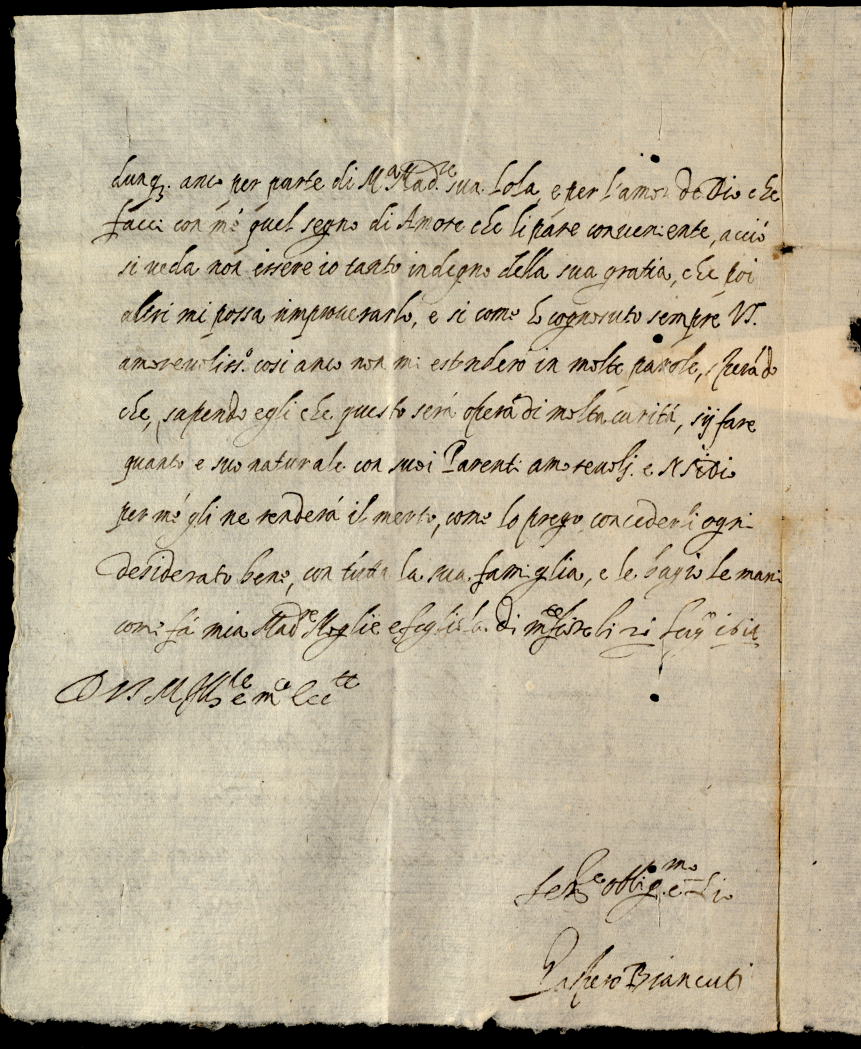 dunq. anco per parte di Mᵃ Madʳᵉ sua Lola e per l'amor de Dio che
facci con mé quel segno di Amore che li pare conveniente, acció
si veda non essere io tanto indegno della sua gratia, che poi
altri mi possa rimproverarlo, e si come hò cognosuto sempre VS.
amorevoliss.º cosi anco non mi estendero in molte parole, sperādo
che, sapendo egli che questo será opera di molta carità, sij fare
quanto e suo naturale con suoi Parenti amorevoli. e N S Idio
per mé gli ne renderá il merto, come lo prego concederli ogni
desiderato bene, con tutta la sua famiglia, e le bagio le mani
come fá mia Madʳᵉ Moglie e di li
D V S M Illʳᵉ e mᵗᵒ Eccᵗᵉ
Serʳᵉ obligᵐᵒ e
Gaspero Biancuti